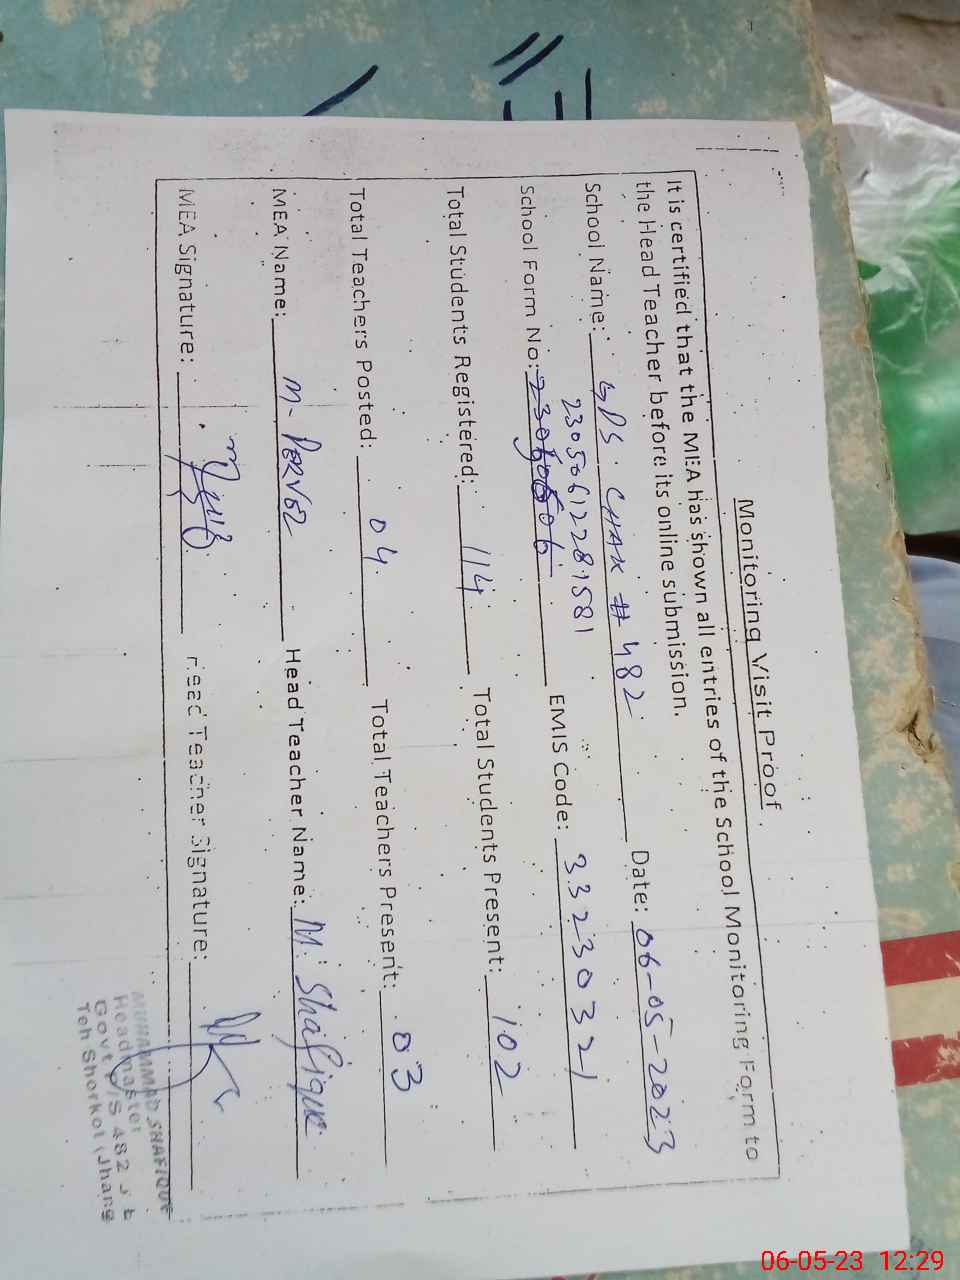 Monitoring Visit Proof
It is certified that the MEA has shown all entries of the School Monitoring Form to
the Head Teacher before its online submission.
School Name: GPS. CHAK # 482 Date: 06-05-2023
23050612281581
School Form No: EMIS Code: 33230321
Total Students Registered: 114 Total Students Present: 102
Total Teachers Posted: 04 Total Teachers Present: 03
MEA Name: M- PERVEZ Head Teacher Name: M. Shafique
MEA Signature: Head Teacher Signature:
MUHAMMAD SHAFIQUE
Headmaster
Govt P/S 482 J b
Teh Shorkot (Jhang
06-05-23 12:29